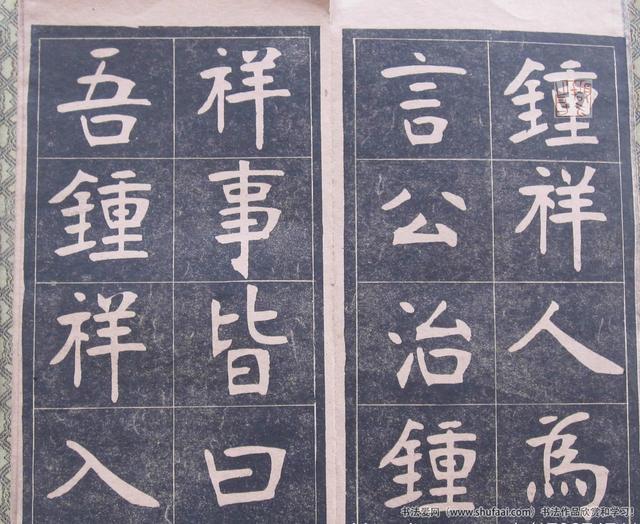 鍾祥人為
言公治鍾
祥事皆曰
吾鍾祥入
书法爱网（www.shufaai.com）书法作品欣赏和学习！